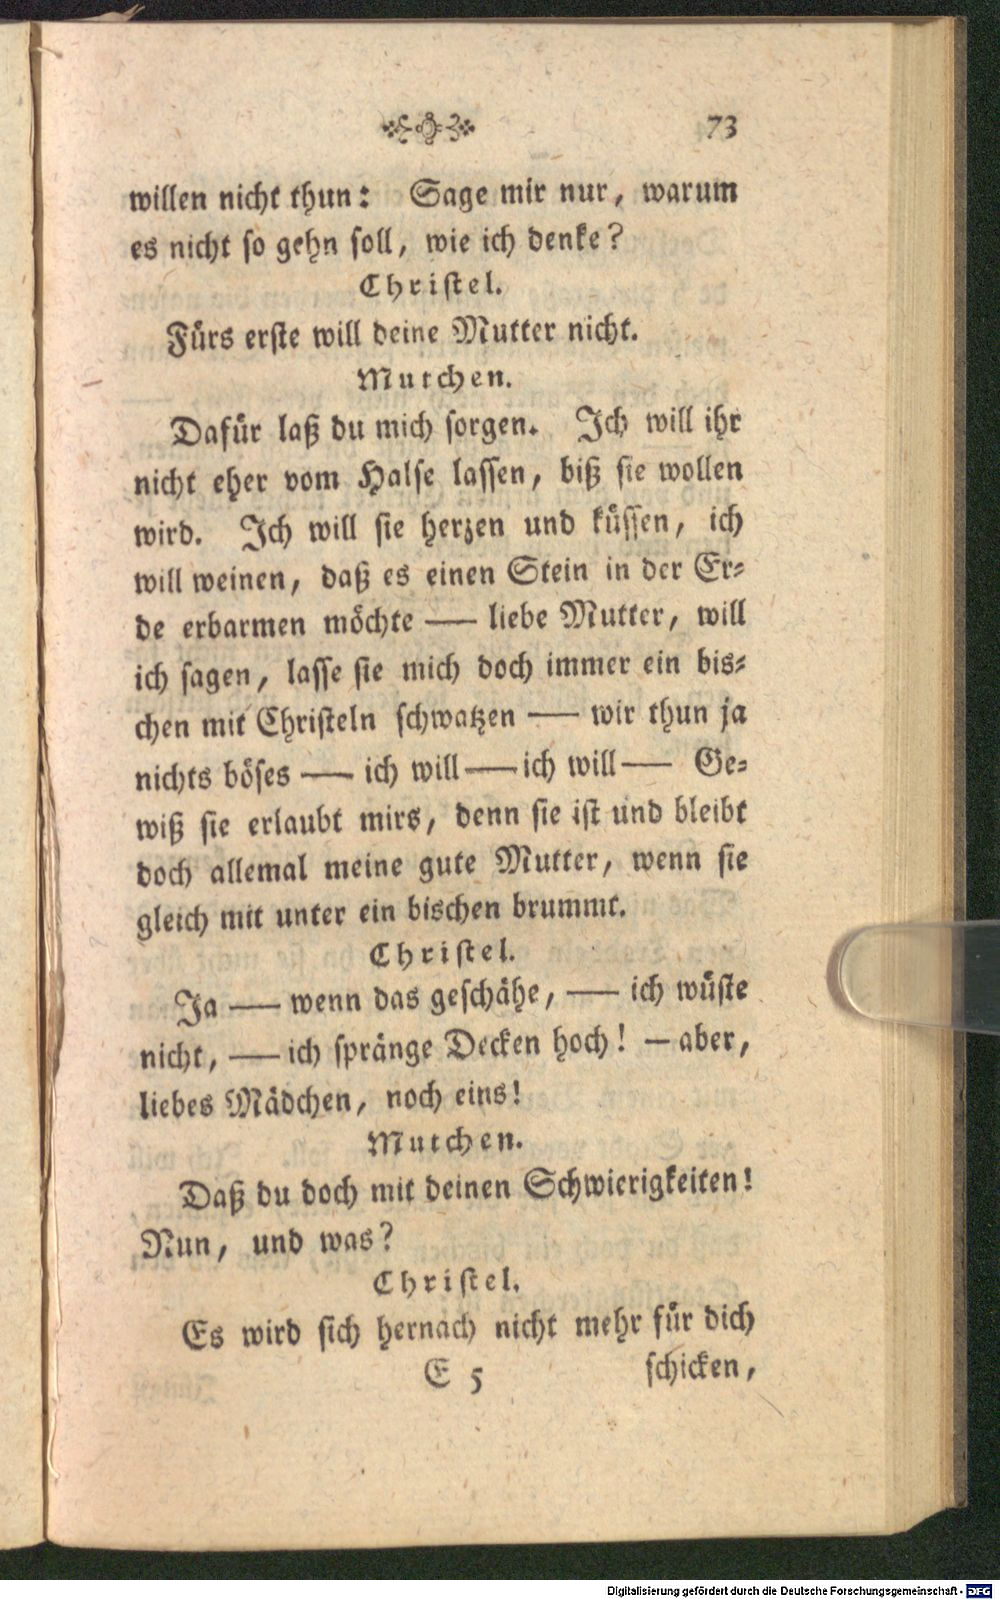 73
willen nicht thun: Sage mir nur, warum
es nicht so gehn soll, wie ich denke?
Christel.
Fürs erste will deine Mutter nicht.
Mutchen.
Dafür laß du mich sorgen. Ich will ihr
nicht eher vom Halse lassen, biß sie wollen
wird. Ich will sie herzen und küssen, ich
will weinen, daß es einen Stein in der Er-
de erbarmen möchte — liebe Mutter, will
ich sagen, lasse sie mich doch immer ein bis-
chen mit Christeln schwatzen — wir thun ja
nichts böses — ich will — ich will — Ge-
wiß sie erlaubt mirs, denn sie ist und bleibt
doch allemal meine gute Mutter, wenn sie
gleich mit unter ein bischen brummt.
Christel.
Ja — wenn das geschähe, — ich wüste
nicht, — ich spränge Decken hoch! — aber,
liebes Mädchen, noch eins!
Mutchen.
Daß du doch mit deinen Schwierigkeiten!
Nun, und was?
Christel.
Es wird sich hernach nicht mehr für dich
E 5 schicken,
Digitalisierung gefördert durch die Deutsche Forschungsgemeinschaft - DFG